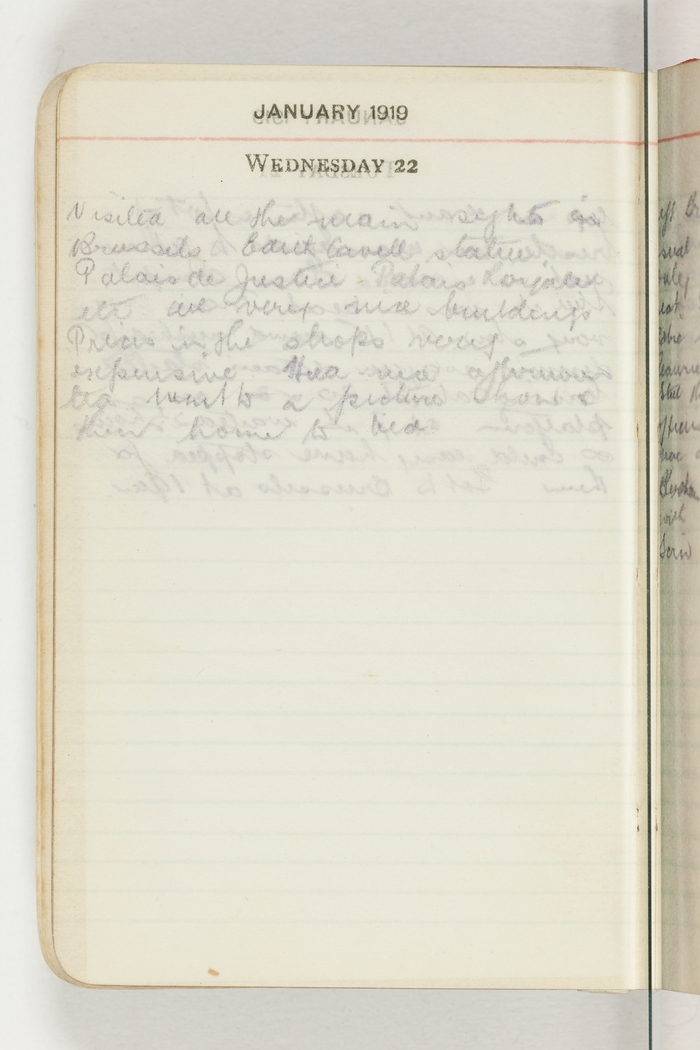 JANUARY 1919
WEDNESDAY 22
Visited all the main sights in
Brussels Edith Cavell statue
Palais de Justice Palais
etc all very nice buildings
Prices in the shops very
expensive Had afternoon
tea went to a picture show &
then home to bed